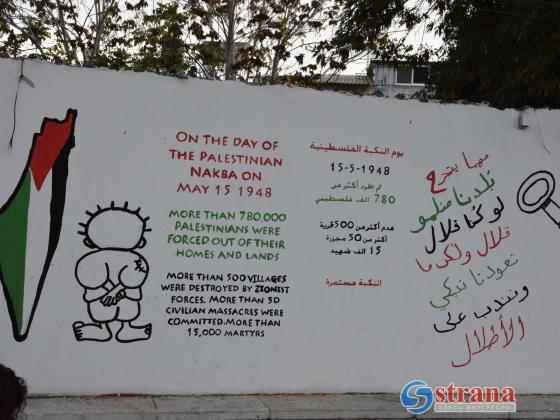 ON THE DAY OF
THE PALESTINIAN
NAKBA ON
MAY 15 1948
MORE THAN 780,000
PALESTINIANS WERE
FORCED OUT OF THEIR
HOMES AND LANDS
MORE THAN 500 VILLAGES
WERE DESTROYED BY ZIONIST
FORCES. MORE THAN 50
CIVILIAN MASSACRES WERE
COMMITTED. MORE THAN
15,000 MARTYRS
يوم النكبة الفلسطينية
15-5-1948
تم طرد أكثر من
780 الف فلسطيني
هدم أكثر من 500 قرية
أكثر من 50 مجزرة
15 الف شهيد
النكبة مستمرة
مهما يتجرح
بلدنا منلمو
لو كنا قلال
قلال ولكن ما
تعودنا نبكي
ونندب على
الأطلال
strana
ЗДЕСЬ ИНТЕРЕСНО